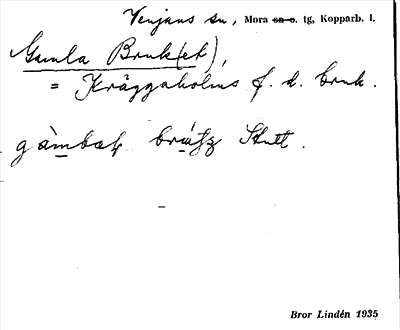 Venjans sn, Mora sn o. tg, Kopparb. l.
Gamla Bruk(et),
= Kräggaholms f. d. bruk.
Stutt.
Bror Lindén 1935